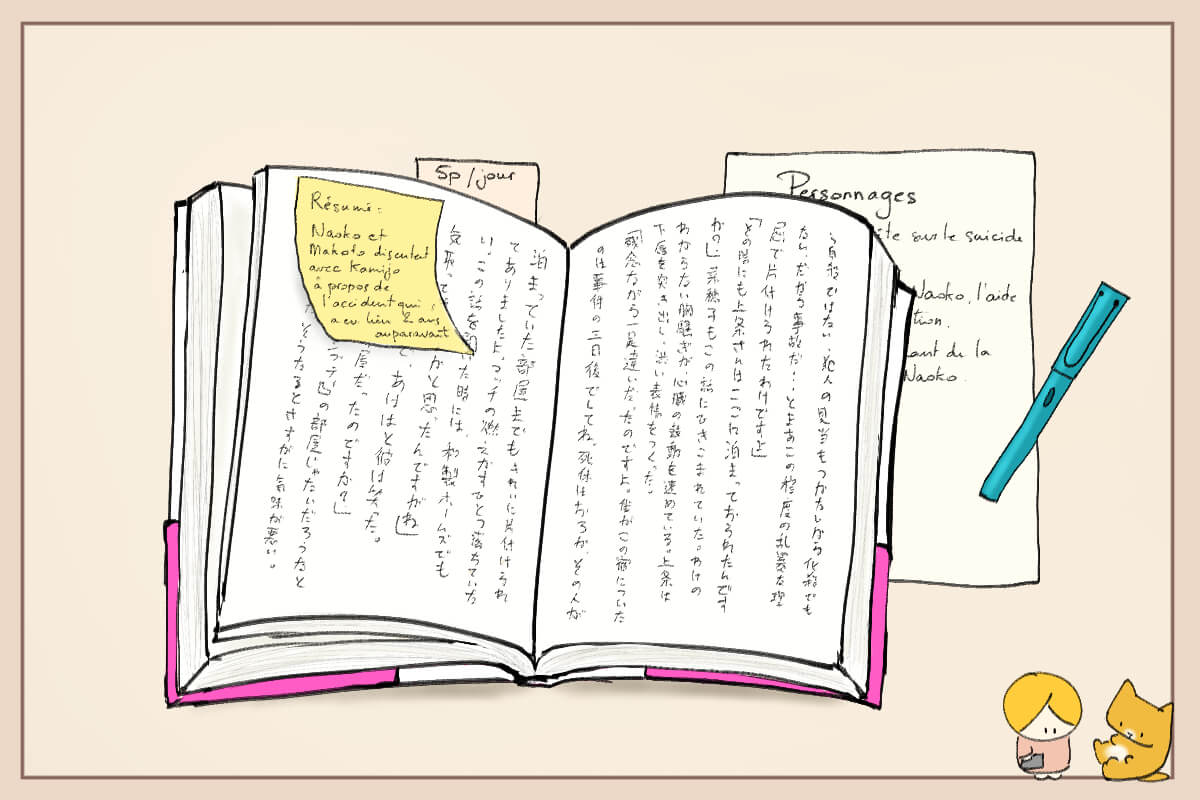 Résumé :
Naoko et
Makoto discutent
avec Kamijo
à propos de
l'accident qui
a eu lieu 2 ans
auparavant
5p/jour
Personnages
ête sur le suicide
Naoko, l'aide
tion.
ant de la
Naoko.
う自殺ではない、犯人の見当もつかないから他殺でも
ない、だから事故だ・・・とまあこの程度の乱暴な理
屈で片付けられたわけですよ」
「その際にも上条さんはここに泊まっておられたんです
かの」菜穂子もこの話にひきこまれていた。わけの
わからない胸騒ぎが、心臓の鼓動を速めている。上条は
下唇を突き出し、渋い表情をつくった。
「残念ながら一足違いだったのですよ。僕がこの宿についた
のは事件の三日後でしてね。死体はおろか、その人が
泊まっていた部屋までもきれいに片付けられ
てありましたよ。マッチの燃えかすひとつ落ちていな
い。この話を聞いた時には、和製ホームズでも
気取って かと思ったんですがね」
で、あははと彼は笑った。
部屋だったのですか？」
の部屋じゃないだろうなと
そうなるとさすがに気味が悪い。